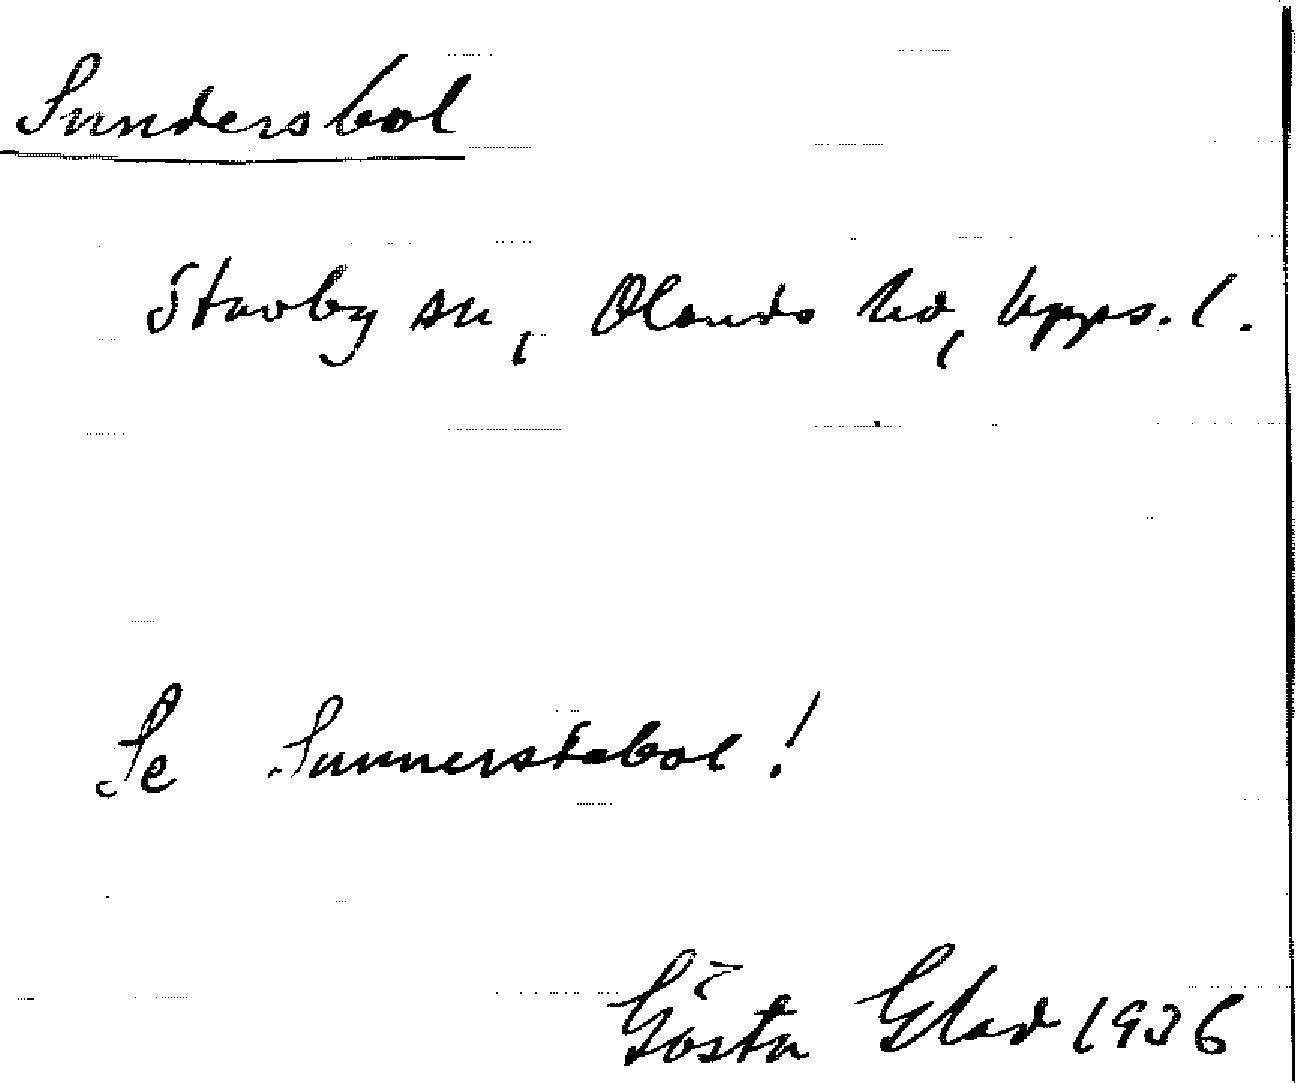 Sundersbol
Stavby sn, Olands hd, Upps. l.
Se Sunnerstabol!
Gösta Elad 1936